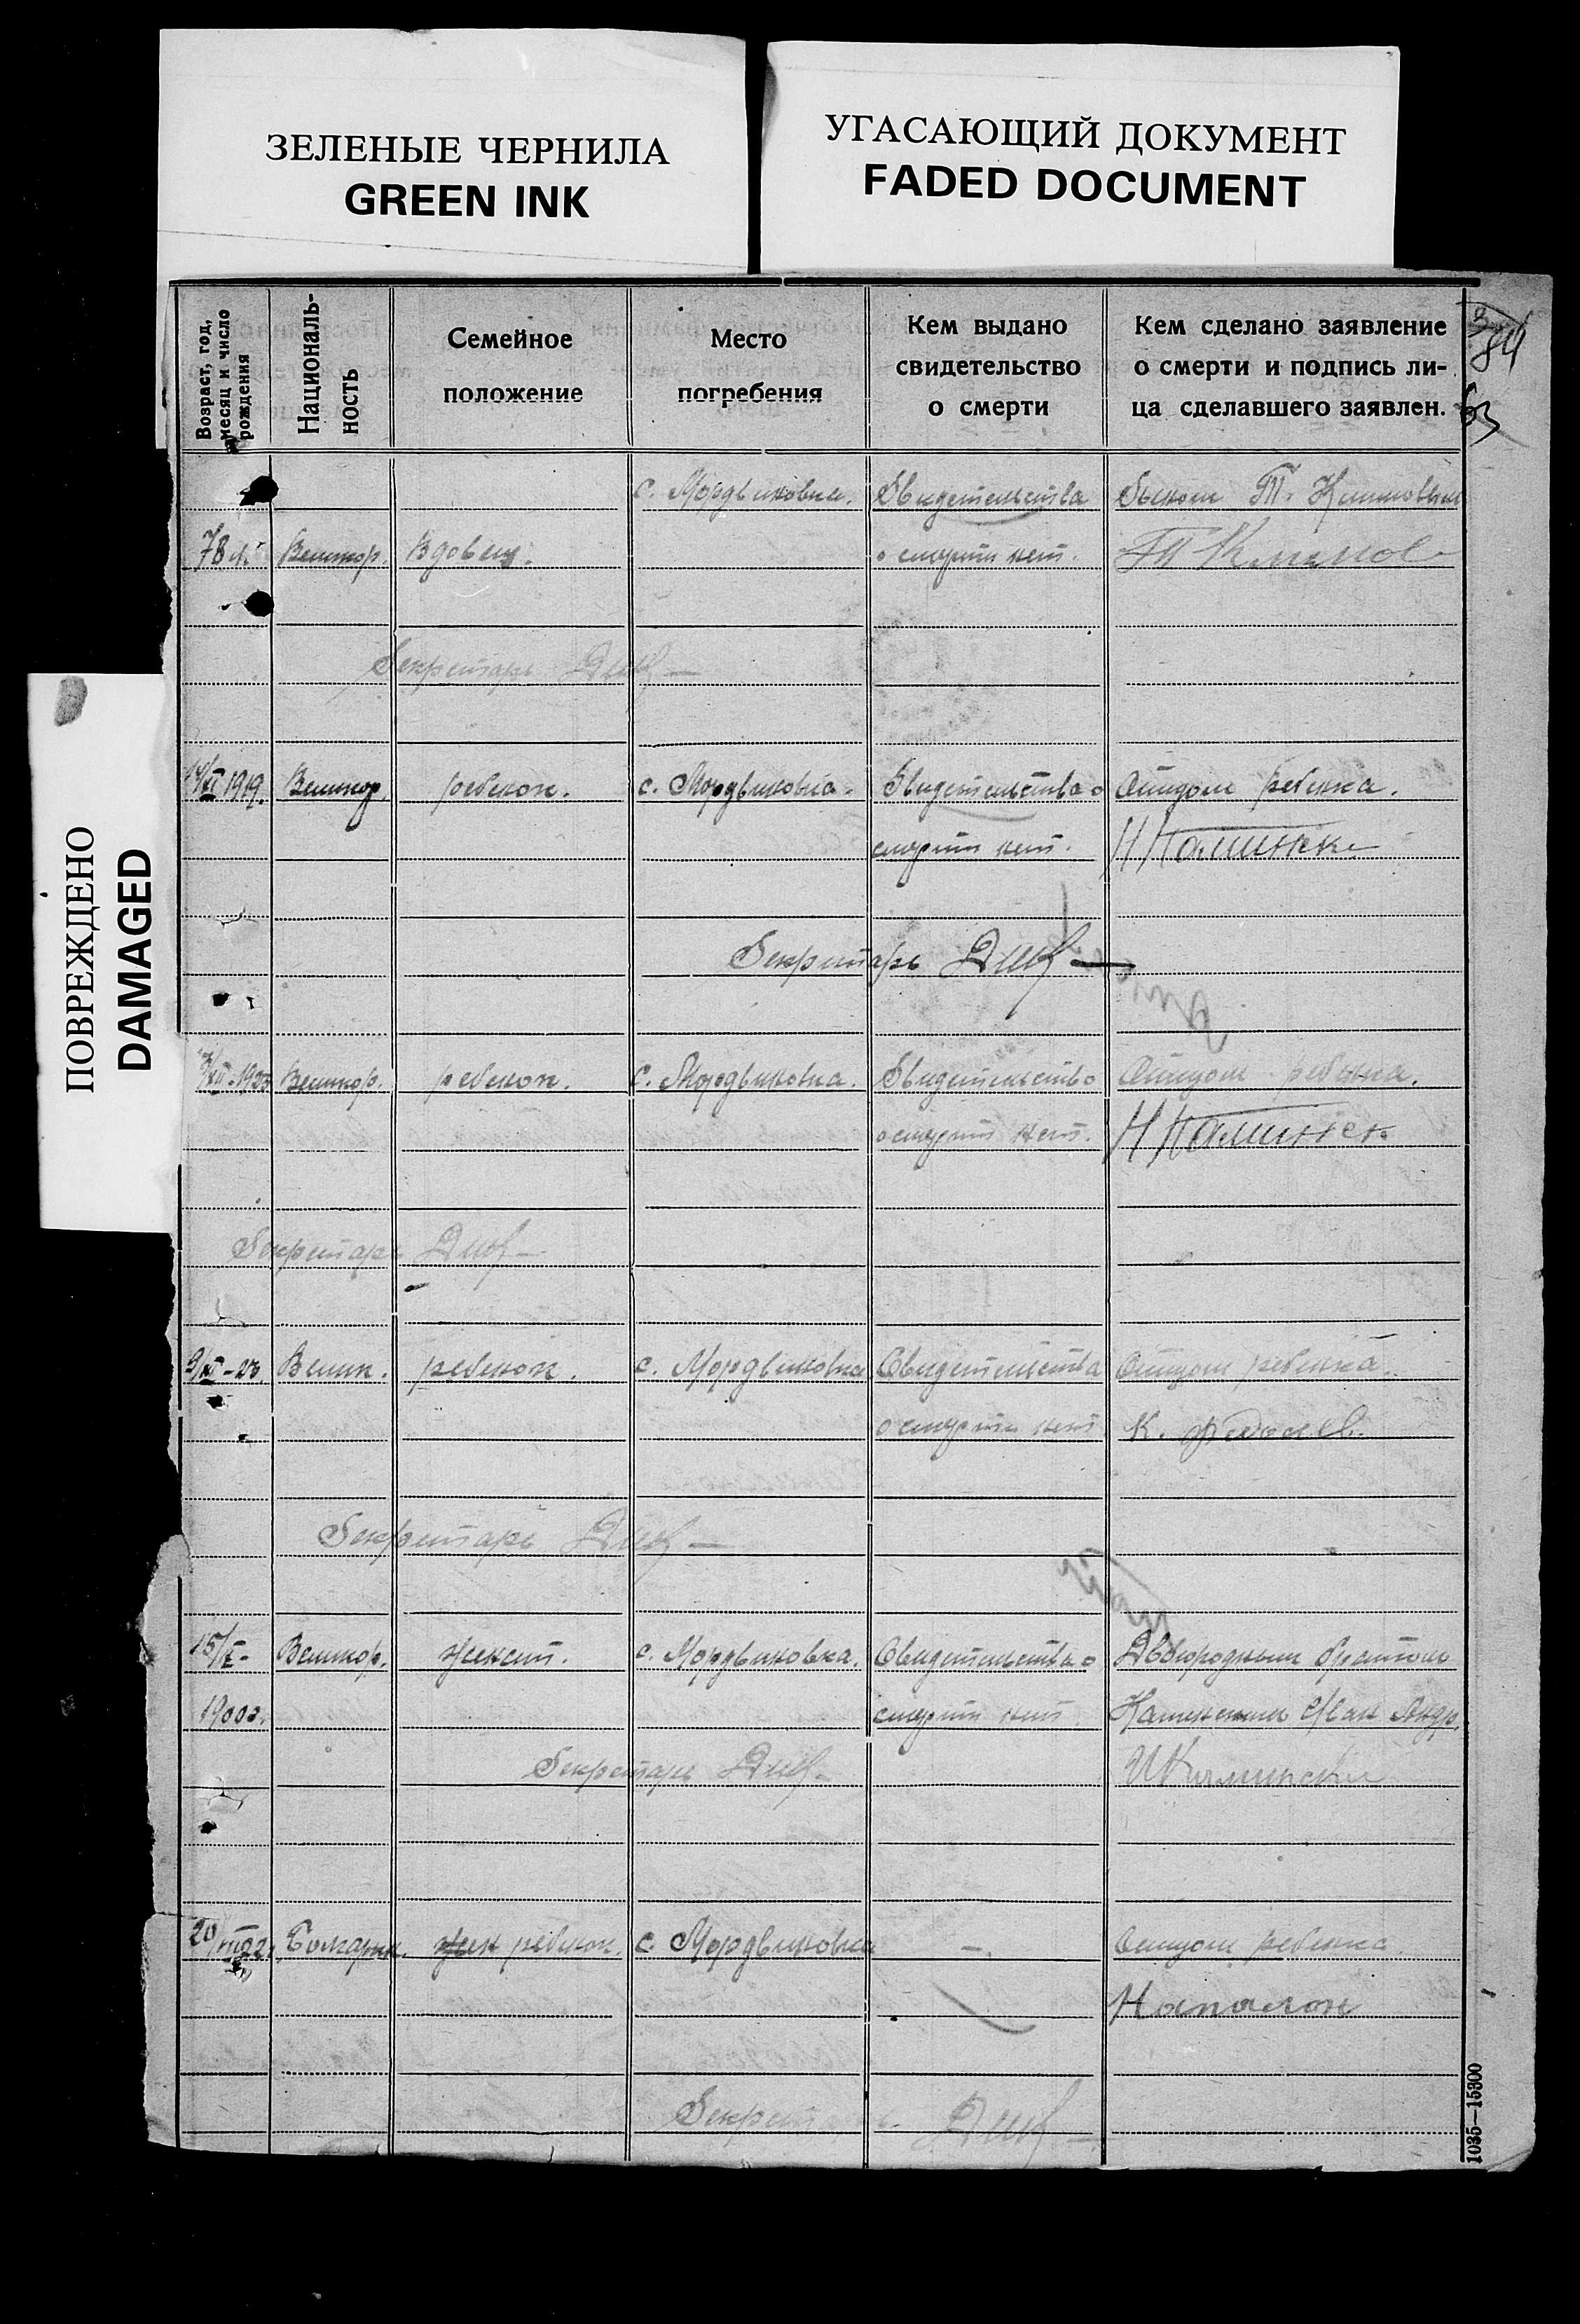 ЗЕЛЕНЫЕ ЧЕРНИЛА
GREEN INK
УГАСАЮЩИЙ ДОКУМЕНТ
FADED DOCUMENT
ПОВРЕЖДЕНО
DAMAGED
Возраст, год,
месяц и число
рождения
Националь-
ность
Семейное
положение
Место
погребения
Кем выдано
свидетельство
о смерти
Кем сделано заявление
о смерти и подпись ли-
ца сделавшего заявлен.
84
63
с. Мордвиновка. Свидетельства Сыном Т. Климовым
78 л. Великор. Вдовец. о смерти нет. Т Климов
Секретарь
14/XI 1919. Великор. ребенок. с. Мордвиновка. Свидетельства о Отцом ребенка.
смерти нет.
Секретарь
Великор. ребенок. с. Мордвиновка. Свидетельство Отцом ребенка.
о смерти нет.
Секретарь
9/XI-23. Велик. ребенок. с. Мордвиновка Свидетельства Отцом ребенка.
о смерти нет К.
Секретарь
15/X- Великор. женат. с. Мордвиновка. Свидетельства о Двоюродным братом
1900г. смерти нет. Иван Андр.
Секретарь
20/VIII 22г. Болгарин. жен ребенок. с. Мордвиновка -. Отцом ребенка
Секрет
1035—15300